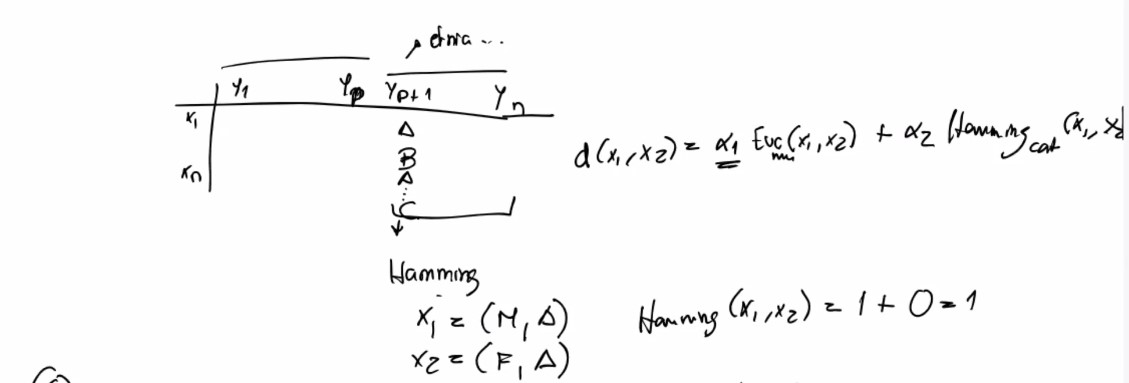 etnia ...
Y1 Yp Yp+1 Yn
x1
A
B
xn
A
C
d(x1, x2) = α1 Euc num (x1, x2) + α2 Hamming cat (x1, x2
Hamming
x1 = (M, A)
x2 = (F, A)
Hamming (x1, x2) = 1 + 0 = 1